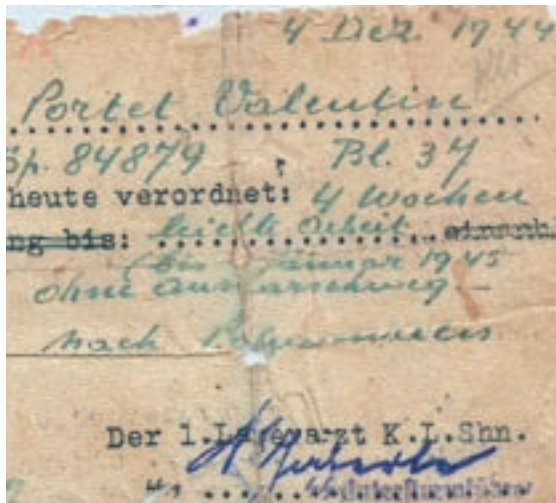 4 Dez. 1944
Portet Valentin
Sp. 84879 Bl. 37
heute verordnet: 4 Wochen
ng bis: leichte Arbeit
bis Januar 1945
ohne
nach
Der 1.Lagerarzt K.L.Shn.